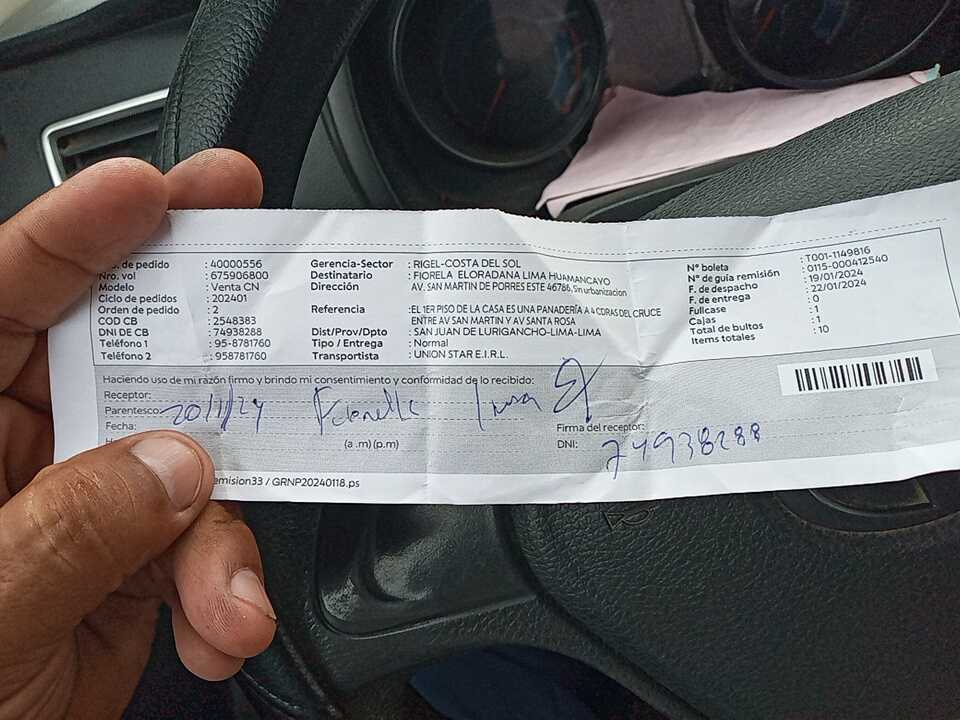 . de pedido : 40000556
Nro. vol : 675906800
Modelo : Venta CN
Ciclo de pedidos : 202401
Orden de pedido : 2
COD CB : 2548383
DNI DE CB : 74938288
Teléfono 1 : 95-8781760
Teléfono 2 : 958781760
Gerencia-Sector : RIGEL-COSTA DEL SOL
Destinatario : FIORELA ELORADANA LIMA HUAMANCAYO
Dirección : AV. SAN MARTIN DE PORRES ESTE 46786, Sin urbanizacion
Referencia : EL 1ER PISO DE LA CASA ES UNA PANADERÍA A 4 CDRAS DEL CRUCE
ENTRE AV SAN MARTIN Y AV SANTA ROSA
Dist/Prov/Dpto : SAN JUAN DE LURIGANCHO-LIMA-LIMA
Tipo / Entrega : Normal
Transportista : UNION STAR E.I.R.L.
N° boleta : T001-1149816
N° de guía remisión : 0115-000412540
F. de despacho : 19/01/2024
F. de entrega : 22/01/2024
Fullcase : 0
Cajas : 1
Total de bultos : 1
Items totales : 10
Haciendo uso de mi razón firmo y brindo mi consentimiento y conformidad de lo recibido:
Receptor:
Parentesco:
Fecha: 20/1/24
(a .m) (p.m)
Firma del receptor:
DNI: 74938288
emision33 / GRNP20240118.ps